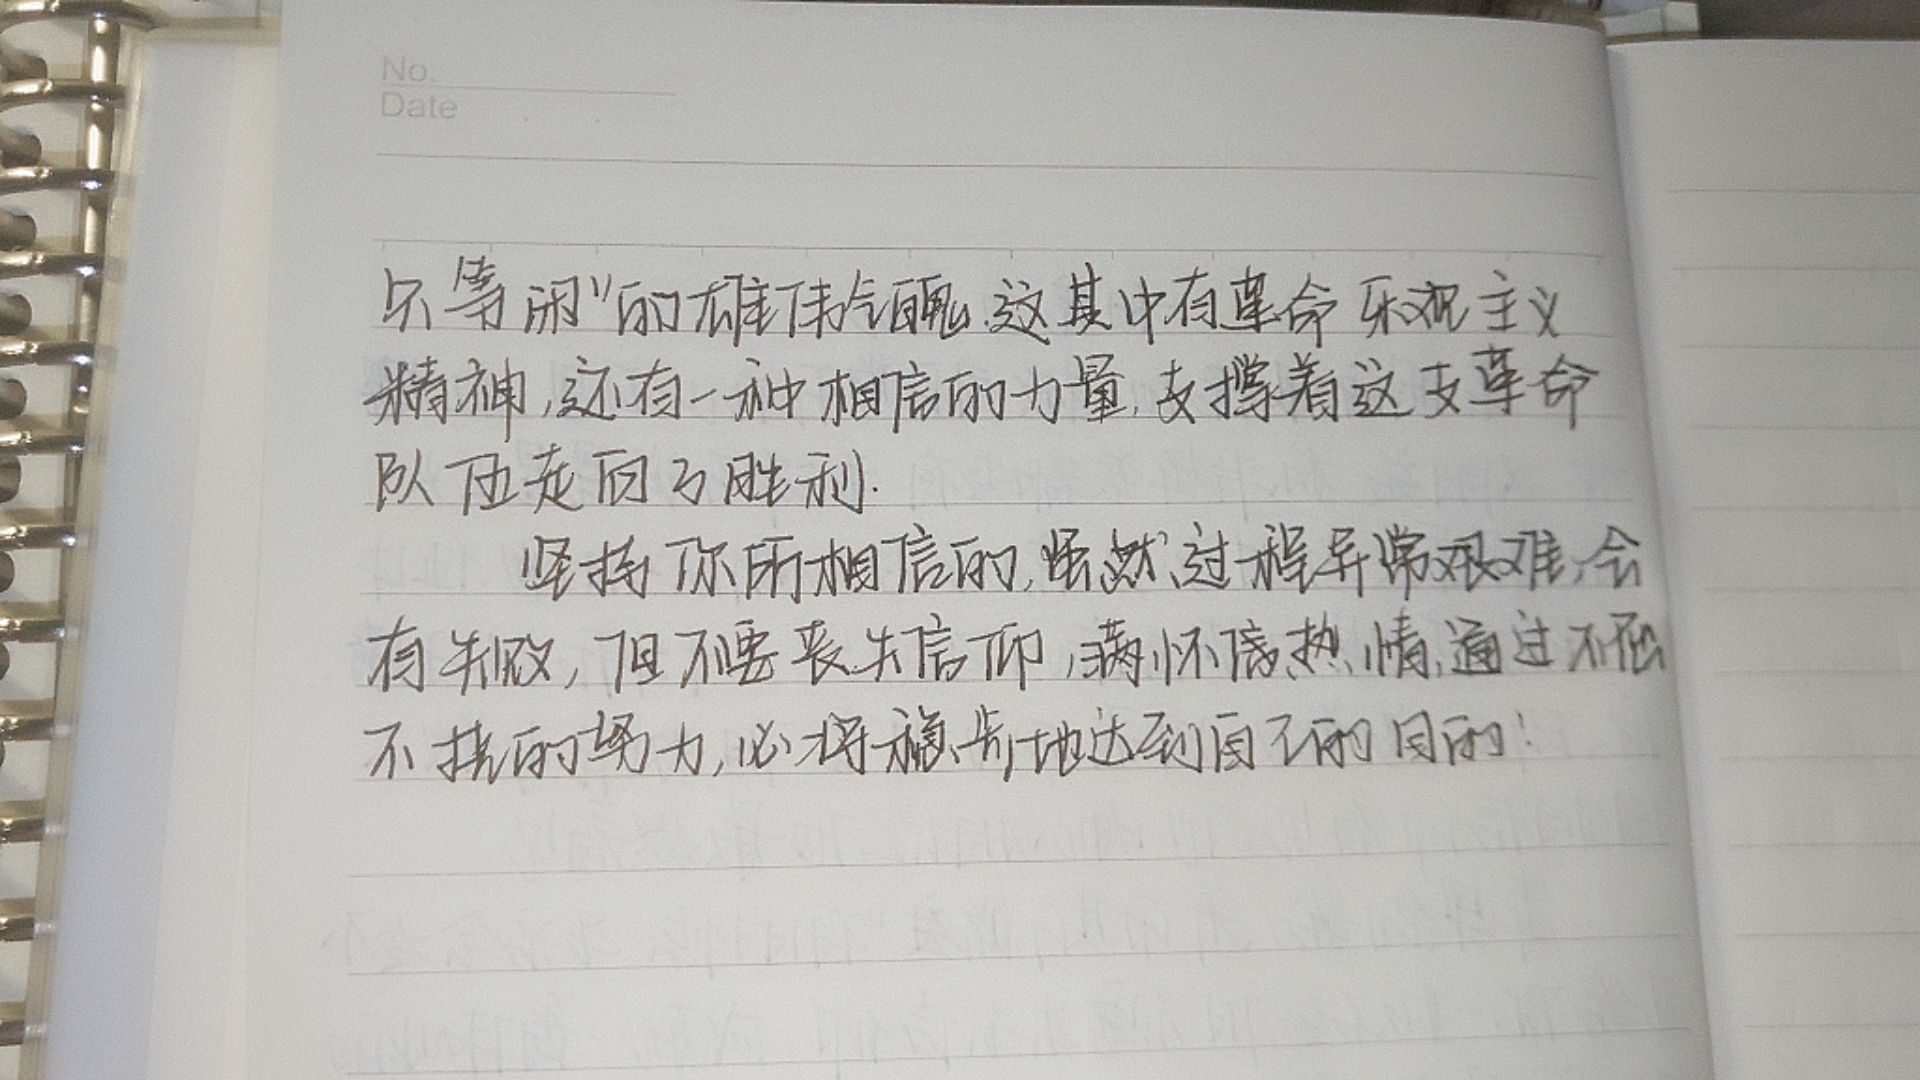 No.
Date
只等闲”的雄伟气魄.这其中有革命乐观主义
精神,还有一种相信的力量,支撑着这支革命
队伍走向了胜利.
坚持你所相信的,虽然过程异常艰难,会
有失败,但不要丧失信仰,满怀信热情,通过不屈
不挠的努力,必将稳步地达到自己的目的!